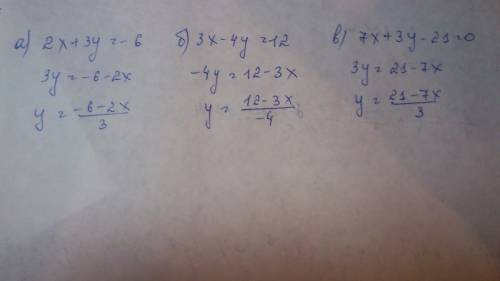 а) 2x+3y=-6
3y=-6-2x
y=\frac{-6-2x}{3}
б) 3x-4y=12
-4y=12-3x
y=\frac{12-3x}{-4}
в) 7x+3y-21=0
3y=21-7x
y=\frac{21-7x}{3}